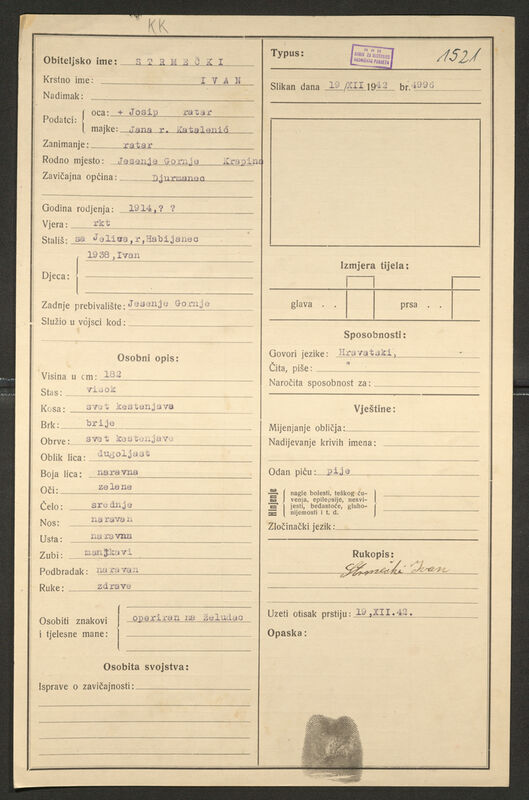 KK
Obiteljsko ime: STRMEČKI
Krstno ime: IVAN
Nadimak:
Podatci: oca: + Josip ratar
majke: Jana r. Katalenić
Zanimanje: ratar
Rodno mjesto: Jesenje Gornje Krapina
Zavičajna općina: Djurmanec
Godina rodjenja: 1914,? ?
Vjera: rkt
Stališ: sa Jelica,r,Habijanec
1938,Ivan
Djeca:
Zadnje prebivalište: Jesenje Gornje
Služio u vojsci kod:
Osobni opis:
Visina u cm: 182
Stas: visok
Kosa: svet kestenjava
Brk: brije
Obrve: svet kestenjave
Oblik lica: dugoljast
Boja lica: naravna
Oči: zelene
Čelo: srednje
Nos: naravan
Usta: naravna
Zubi: manjkavi
Podbradak: naravan
Ruke: zdrave
Osobiti znakovi i tjelesne mane: operiran na želudac
Osobita svojstva:
Isprave o zavičajnosti:
Typus:
1521
Slikan dana 19/XII 1942 br. 4996
Izmjera tijela:
glava . . prsa . .
Sposobnosti:
Govori jezike: Hravatski,
Čita, piše: "
Naročita sposobnost za:
Vještine:
Mijenjanje obličja:
Nadijevanje krivih imena:
Odan piću: pije
Hinjenje
nagle bolesti, teškog ču-
venja, epilepsije, nesvi-
jesti, bedastoće, gluho-
nijemosti i t. d.
Zločinački jezik:
Rukopis:
Strmečki Ivan
Uzeti otisak prstiju: 19,XII.42.
Opaska: